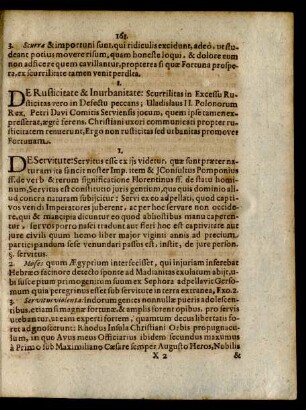 163.
3. Scurræ & importuni sunt, qui ridiculis excidunt, adeò, ut studeant potius movere risum, quam honeste loqui, & dolore eum non adficere quem cavillantur, propterea si quæ Fortuna prospera, ex scurrilitate tamen venit perdita.
1.
DE Rusticitate & Inurbanitate: Scurrilitas in Excessu Rusticitas vero in Defectu peccans; Uladislaus II. Polonorum
Rex, Petri Davi Comitis Serviensis jocum, quem ipse tamen expresserat, ægrè ferens. Christiani uxori communicati propter
rusticitatem renuerunt, Ergo non rusticitas sed urbanitas promovet
Fortunam.
1.
DE Servitute: Servitus esse ex ijs videtur, quæ sunt præter naturam ita sancit noster Imp. item & JConsultus Pomponius
ff. de verb & rerum significatione Florentinus ff. de statu hominum, Servitus est constitutio juris gentium, qua quis dominio alieno contra naturam subjicitur: Servi ex eo adpellati, quod captivos vendi Imperatores jubent, ac per hoc servare non occidere, qui & mancipia dicuntur eo quod abhostibus manu caperentur: servos porro nasci tradunt aut fieri hoc est captivitate aut
jure civili quum homo liber major viginti annis ad precium,
participandum sese venundari passus est. instit, de jure person.
§. servitus.
2. Moses quum Ægyptium interfecisset, qui injuriam inferebat
Hebræo facinore detecto sponte ad Madianitas exulatum abijt, ubi susceptum primogenitum suum ex Sephora adpellavit Gersomum quia peregrinus esset sub servitute in terra extranea, Exo. 2.
3. Servitus violenta: Indorum gentes nonnullæ pueris adolescentibus, etiamsi magnæ fortunæ, & amplis forent opibus, pro servis
utebantur, ut eam experti fortem, quantum decus libertatis foret adgnoscerent: Rhodus Insula Christiani Orbis propugnaculum, in quæ Avus meus Officiarius ibidem secundus maximus
à Primo sub Maximiliano Cæsare semper Augusto Heros, Nobilis
X 2 &